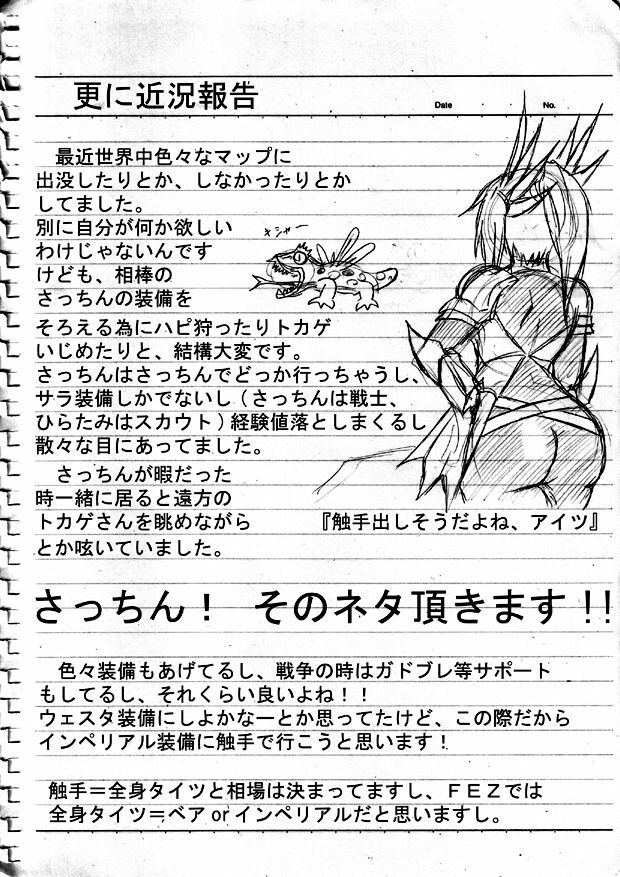 更に近況報告
Date ・ ・ No.
最近世界中色々なマップに
出没したりとか、しなかったりとか
してました。
別に自分が何か欲しい
わけじゃないんです
けども、相棒の
さっちんの装備を
キシャー
そろえる為にハピ狩ったりトカゲ
いじめたりと、結構大変です。
さっちんはさっちんでどっか行っちゃうし、
サラ装備しかでないし(さっちんは戦士、
ひらたみはスカウト)経験値落としまくるし
散々な目にあってました。
さっちんが暇だった
時一緒に居ると遠方の
トカゲさんを眺めながら
『触手出しそうだよね、アイツ』
とか呟いていました。
さっちん! そのネタ頂きます!!
色々装備もあげてるし、戦争の時はガドブレ等サポート
もしてるし、それくらい良いよね!!
ウェスタ装備にしよかなーとか思ってたけど、この際だから
インペリアル装備に触手で行こうと思います!
触手=全身タイツと相場は決まってますし、FEZでは
全身タイツ=ベアorインペリアルだと思いますし。